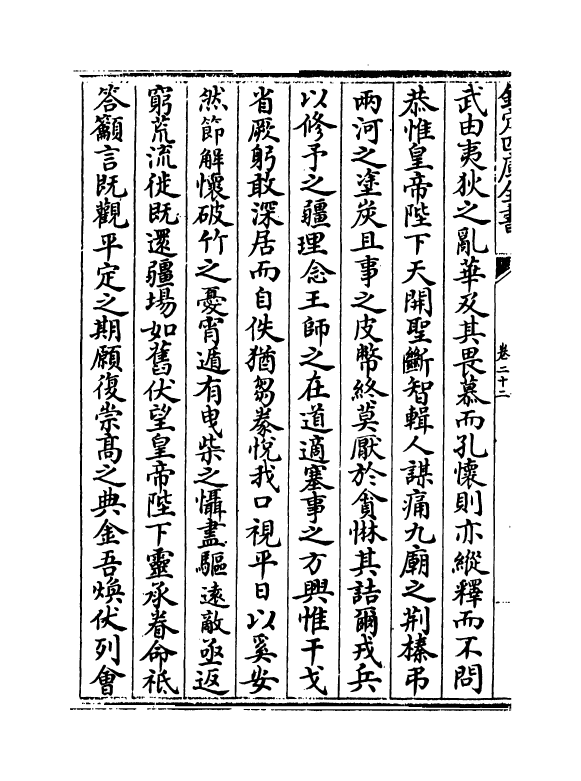 欽定四庫全書
卷二十二
武由夷狄之亂華及其畏慕而孔懷則亦縱釋而不問
恭惟皇帝陛下天開聖斷智輯人謀痛九廟之荆榛弔
兩河之塗炭且事之皮幣終莫厭於貪惏其詰爾戎兵
以修予之疆理念王師之在道適塞事之方興惟干戈
省厥躬敢深居而自佚猶芻豢悅我口視平日以奚安
然節解懷破竹之憂宵遁有曳柴之懾盡驅逺敵亟返
窮荒流徙既還疆場如舊伏望皇帝陛下靈承眷命祇
答籲言既觀平定之期願復崇髙之典金吾煥伏列㑹